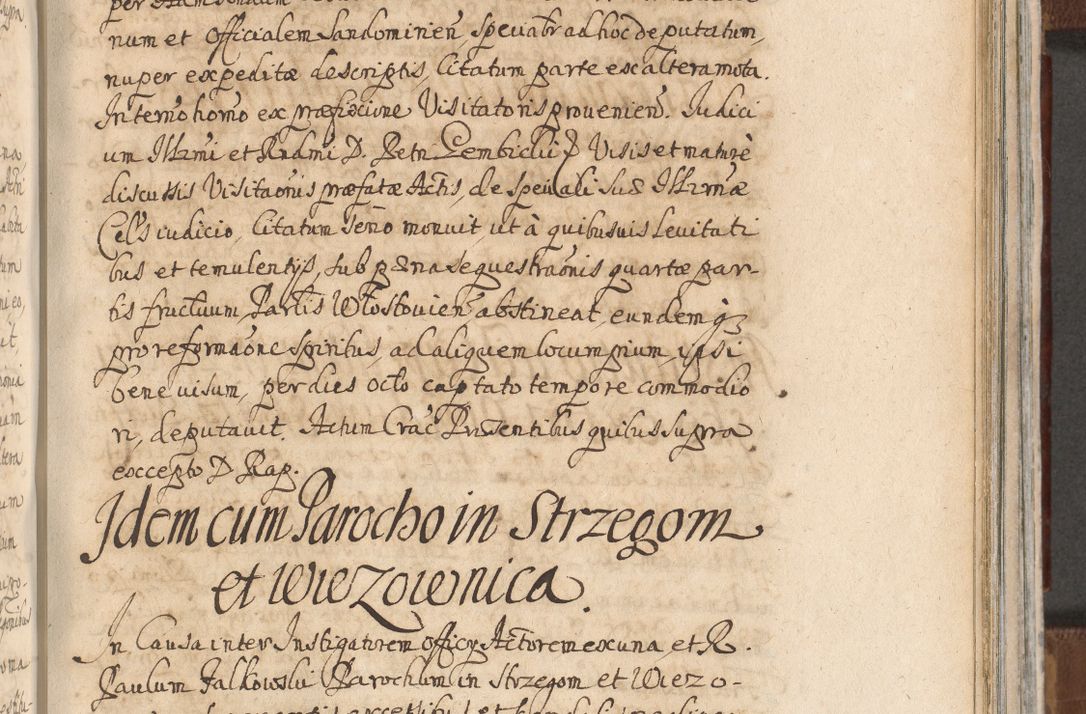 num et Officialem Sandomirien, speciabr ad hoc deputatum,
nuper expeditæ descriptis, Citatum parte ex altera mota.
In termo homo ex præfixione Visitatoris provenien. Iudici
um Illrmi et Rndmi D. Petri Gembicki D Visis et mature
discussis Visitaonis præfatæ Actis, de speciali suæ Illrmæ
Cels iudicio, Citatum seno monuit, ut à quibusvis Levitati
bus et temulentijs, sub pæna sequestraonis quartæ par-
tis fructuum, Partis Włostovien abstineat, eundemq3
pro reformaone spiritus, ad aliquem locum pium, ipsi
bene visum, per dies octo captato tempore commodio
ri, deputavit. Actum Crac Præsentibus quibus supra
excepto D Rap.
Idem cum Parocho in Strzegom
et Wiezownica.
In Causa inter Instigatorem officy Actorem ex una, et R.
Paulum Falkowski Parochum in Strzegom et Wiezo-